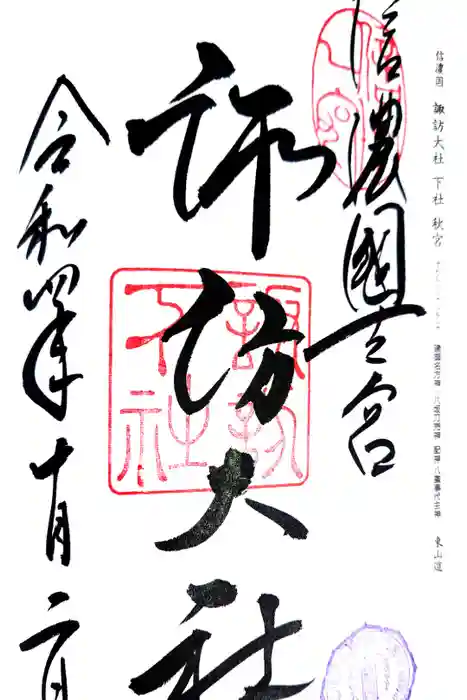 信濃国 諏訪大社 下社 秋宮 建御名方神 八坂刀売神 配神 八重事代主神 東山道
信濃國一之宮
諏訪大社
諏訪
下社
令和四年十月二日